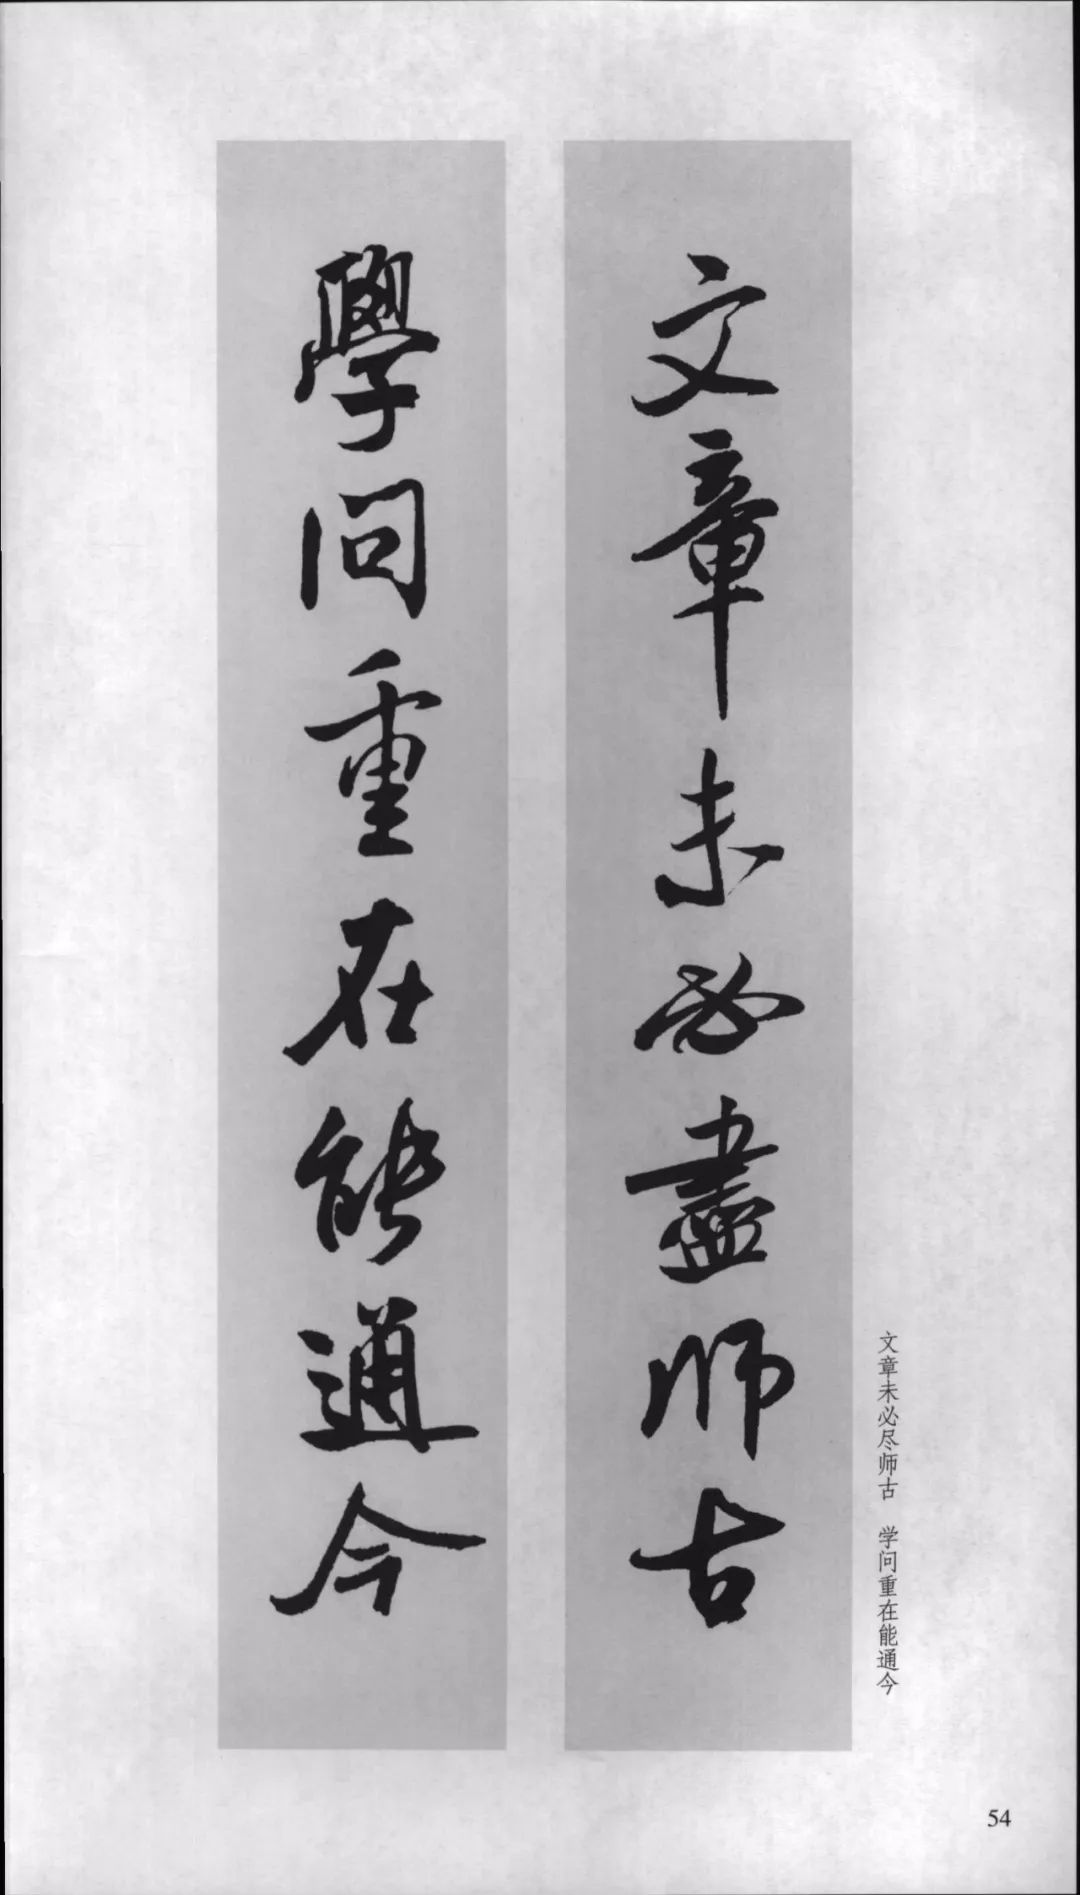 文章未必盡師古
學問重在能通今
文章未必尽师古 学问重在能通今
54